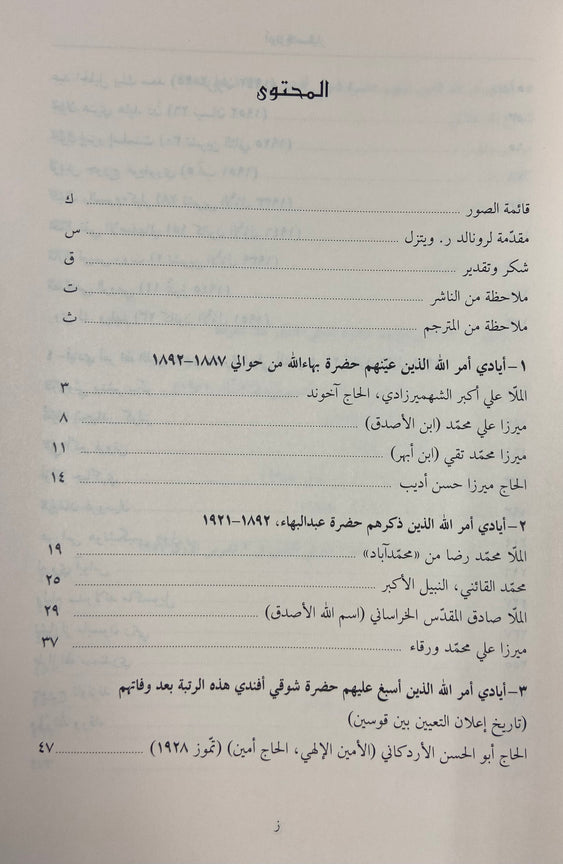 المحتوى
قائمة الصور ك
مقدّمة لرونالد ر. ويتزل س
شكر وتقدير ق
ملاحظة من الناشر ت
ملاحظة من المترجم ث
١- أيادي أمر الله الذين عيّنهم حضرة بهاءالله من حوالي ١٨٨٧-١٨٩٢
الملّا علي أكبر الشهميرزادي، الحاج آخوند ٣
ميرزا علي محمّد (ابن الأصدق) ٨
ميرزا محمّد تقي (ابن أبهر) ١١
الحاج ميرزا حسن أديب ١٤
٢- أيادي أمر الله الذين ذكرهم حضرة عبدالبهاء، ١٨٩٢-١٩٢١
الملّا محمّد رضا من «محمّدآباد» ١٩
محمّد القائني، النبيل الأكبر ٢٥
الملّا صادق المقدّس الخراساني (اسم الله الأصدق) ٢٩
ميرزا علي محمّد ورقاء ٣٧
٣- أيادي أمر الله الذين أسبغ عليهم حضرة شوقي أفندي هذه الرتبة بعد وفاتهم
(تاريخ إعلان التعيين بين قوسين)
الحاج أبو الحسن الأردكاني (الأمين الإلهي، الحاج أمين) (تمّوز ١٩٢٨) ٤٧
ز